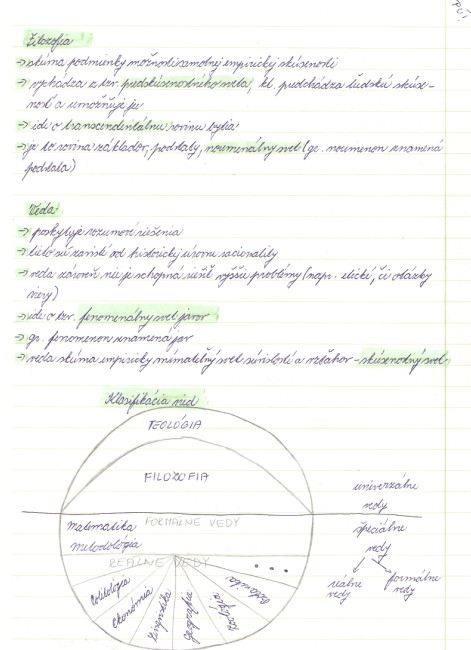 Filozofia
→ skúma podmienky možnosti samotnej empirickej skúsenosti
→ vychádza z tzv. predskúsenostného sveta, kt. predchádza ľudskú skúse-
nosť a umožňuje ju
→ ide o transcendentálnu rovinu bytia
→ je to rovina základov, podstaty, noumenálny svet (gr. noumenon znamená
podstata)
Veda
→ poskytuje rozumové riešenia
→ tieto sú závislé od historickej úrovne racionality
→ veda zároveň nie je schopná riešiť vyššie problémy (napr. etické, či otázky
viery)
→ ide o tzv. fenomenálny svet javov
→ gr. fenomenon znamená jav
→ veda skúma empiricky vnímateľný svet súvislostí a vzťahov - skúsenostný svet
Klasifikácia vied
TEOLÓGIA
FILOZOFIA
univerzálne
vedy
Matematika FORMÁLNE VEDY
metodológia
špeciálne
vedy
REÁLNE VEDY
reálne
vedy
formálne
vedy
Politológia
Ekonómia
Lingvistika
Geografia
Zoológia
Botanika
...